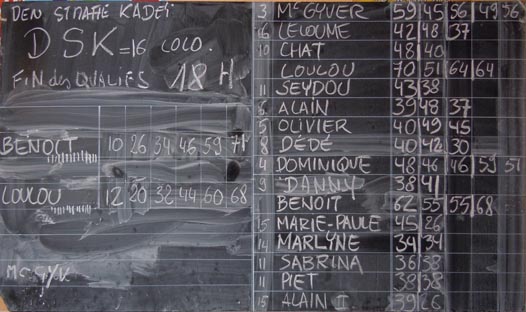 DEN STRAFFE KADEI
DSK=16 LOLO.
FIN des QUALIFS 18 H
BENOIT 10 26 34 46 59 71
LOULOU 12 20 32 44 60 68
Mc GYV
3 Mc GYVER 59 45 56 49 56
16 LELOUME 42 48 37
10 CHAT 48 40
LOULOU 70 51 64 64
11 SEYDOU 43 38
6 ALAIN 39 48 37
5 OLIVIER 40 49 45
8 DÉDÉ 40 42 30
4 DOMINIQUE 48 46 46 59 51
9 DANNY 38 41
1 BENOIT 62 55 55 68
15 MARIE-PAULE 45 26
14 MARLYNE 34 34
11 SABRINA 36 38
11 PIET 38 38
15 ALAIN I 39 26